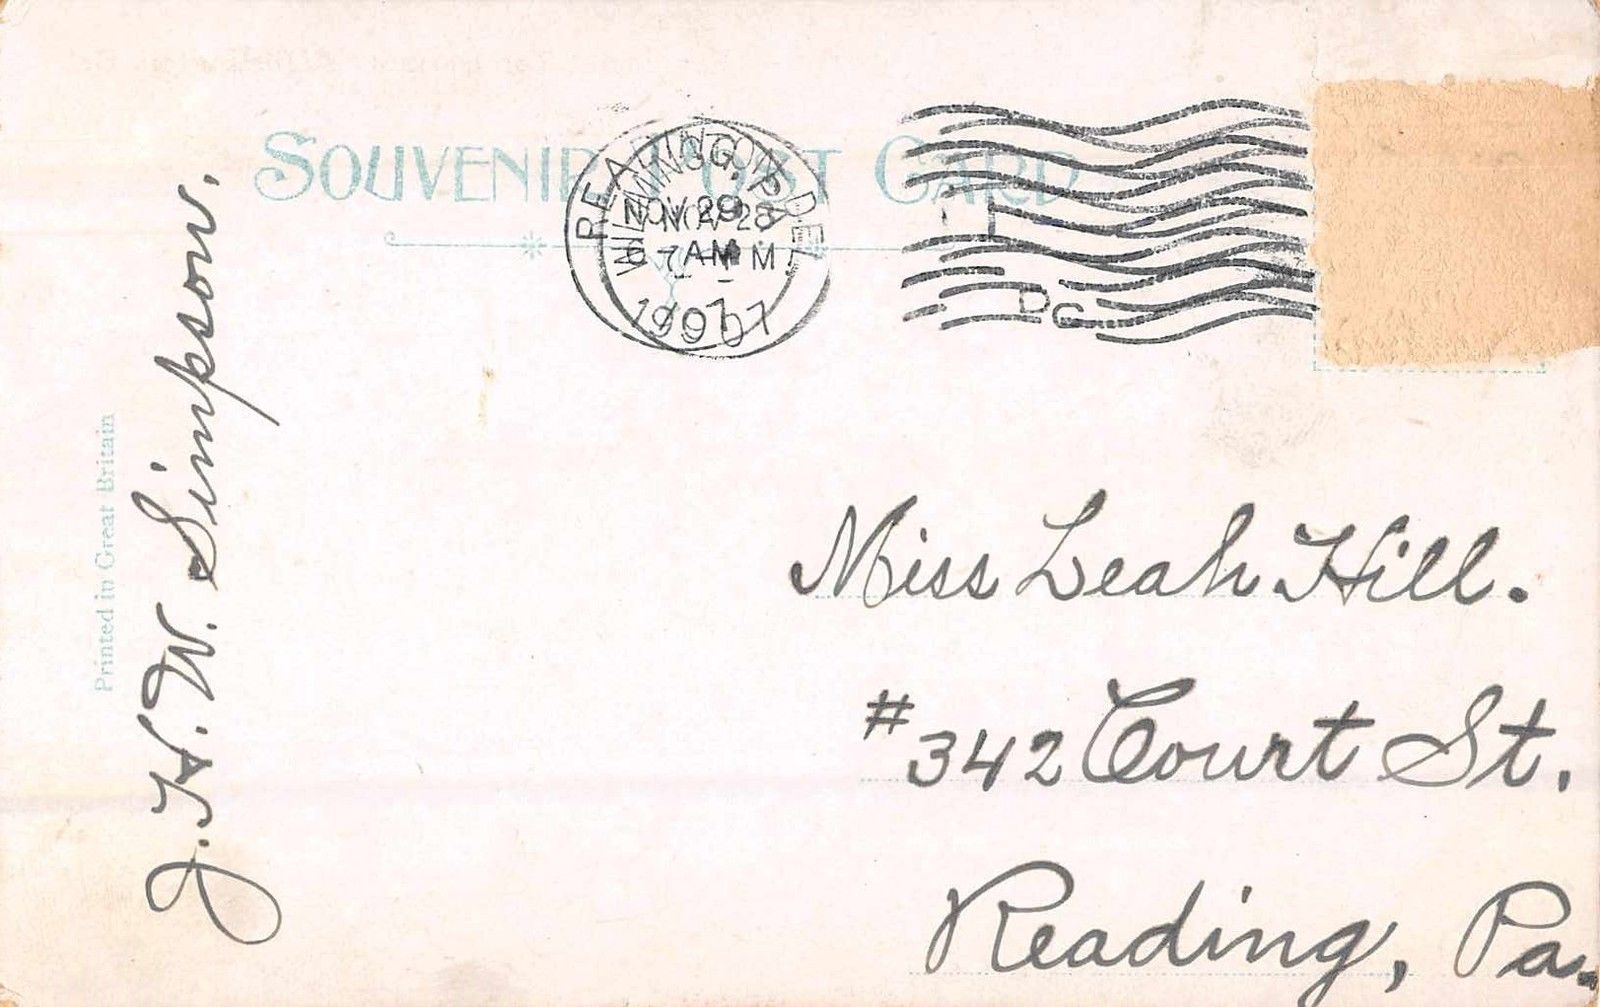 SOUVENIR POST CARD
READING, PA.
NOV 29
7 AM
1907
WILMINGTON, DEL.
NOV 28
M
1907
D C
Printed in Great Britain
J. H. W. Simpson.
Miss Leah Hill.
#342 Court St.
Reading, Pa.